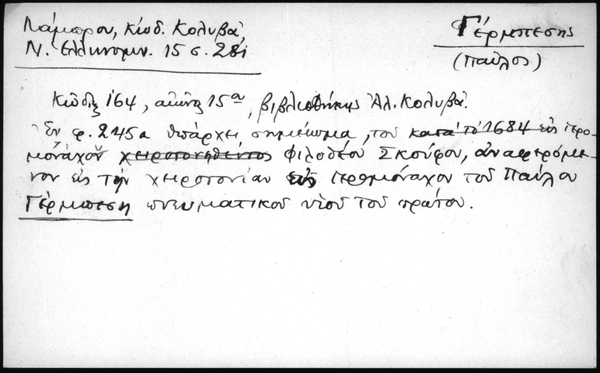 Λάμπρου, Κώδ. Κολυβᾶ,
Ν. Ἑλληνομν. 15 σ. 281
Γέρμπεσης
(Παῦλος)
Κῶδιξ 164, αἰῶνος 15ᾱ, βιβλιοθήκης Ἀλ. Κολυβᾶ.
Ἐν φ. 245α ὑπάρχει σημείωμα, τοῦ κατὰ τὸ 1684 εἰς ἱερο-
μόναχον χειροτονηθέντος Φιλοθέου Σκούφου, ἀναφερόμε-
νον εἰς τὴν χειροτονίαν εἰς ἱερομόναχον τοῦ Παύλου
Γέρμπεση πνευματικοῦ υἱοῦ τοῦ πρώτου.